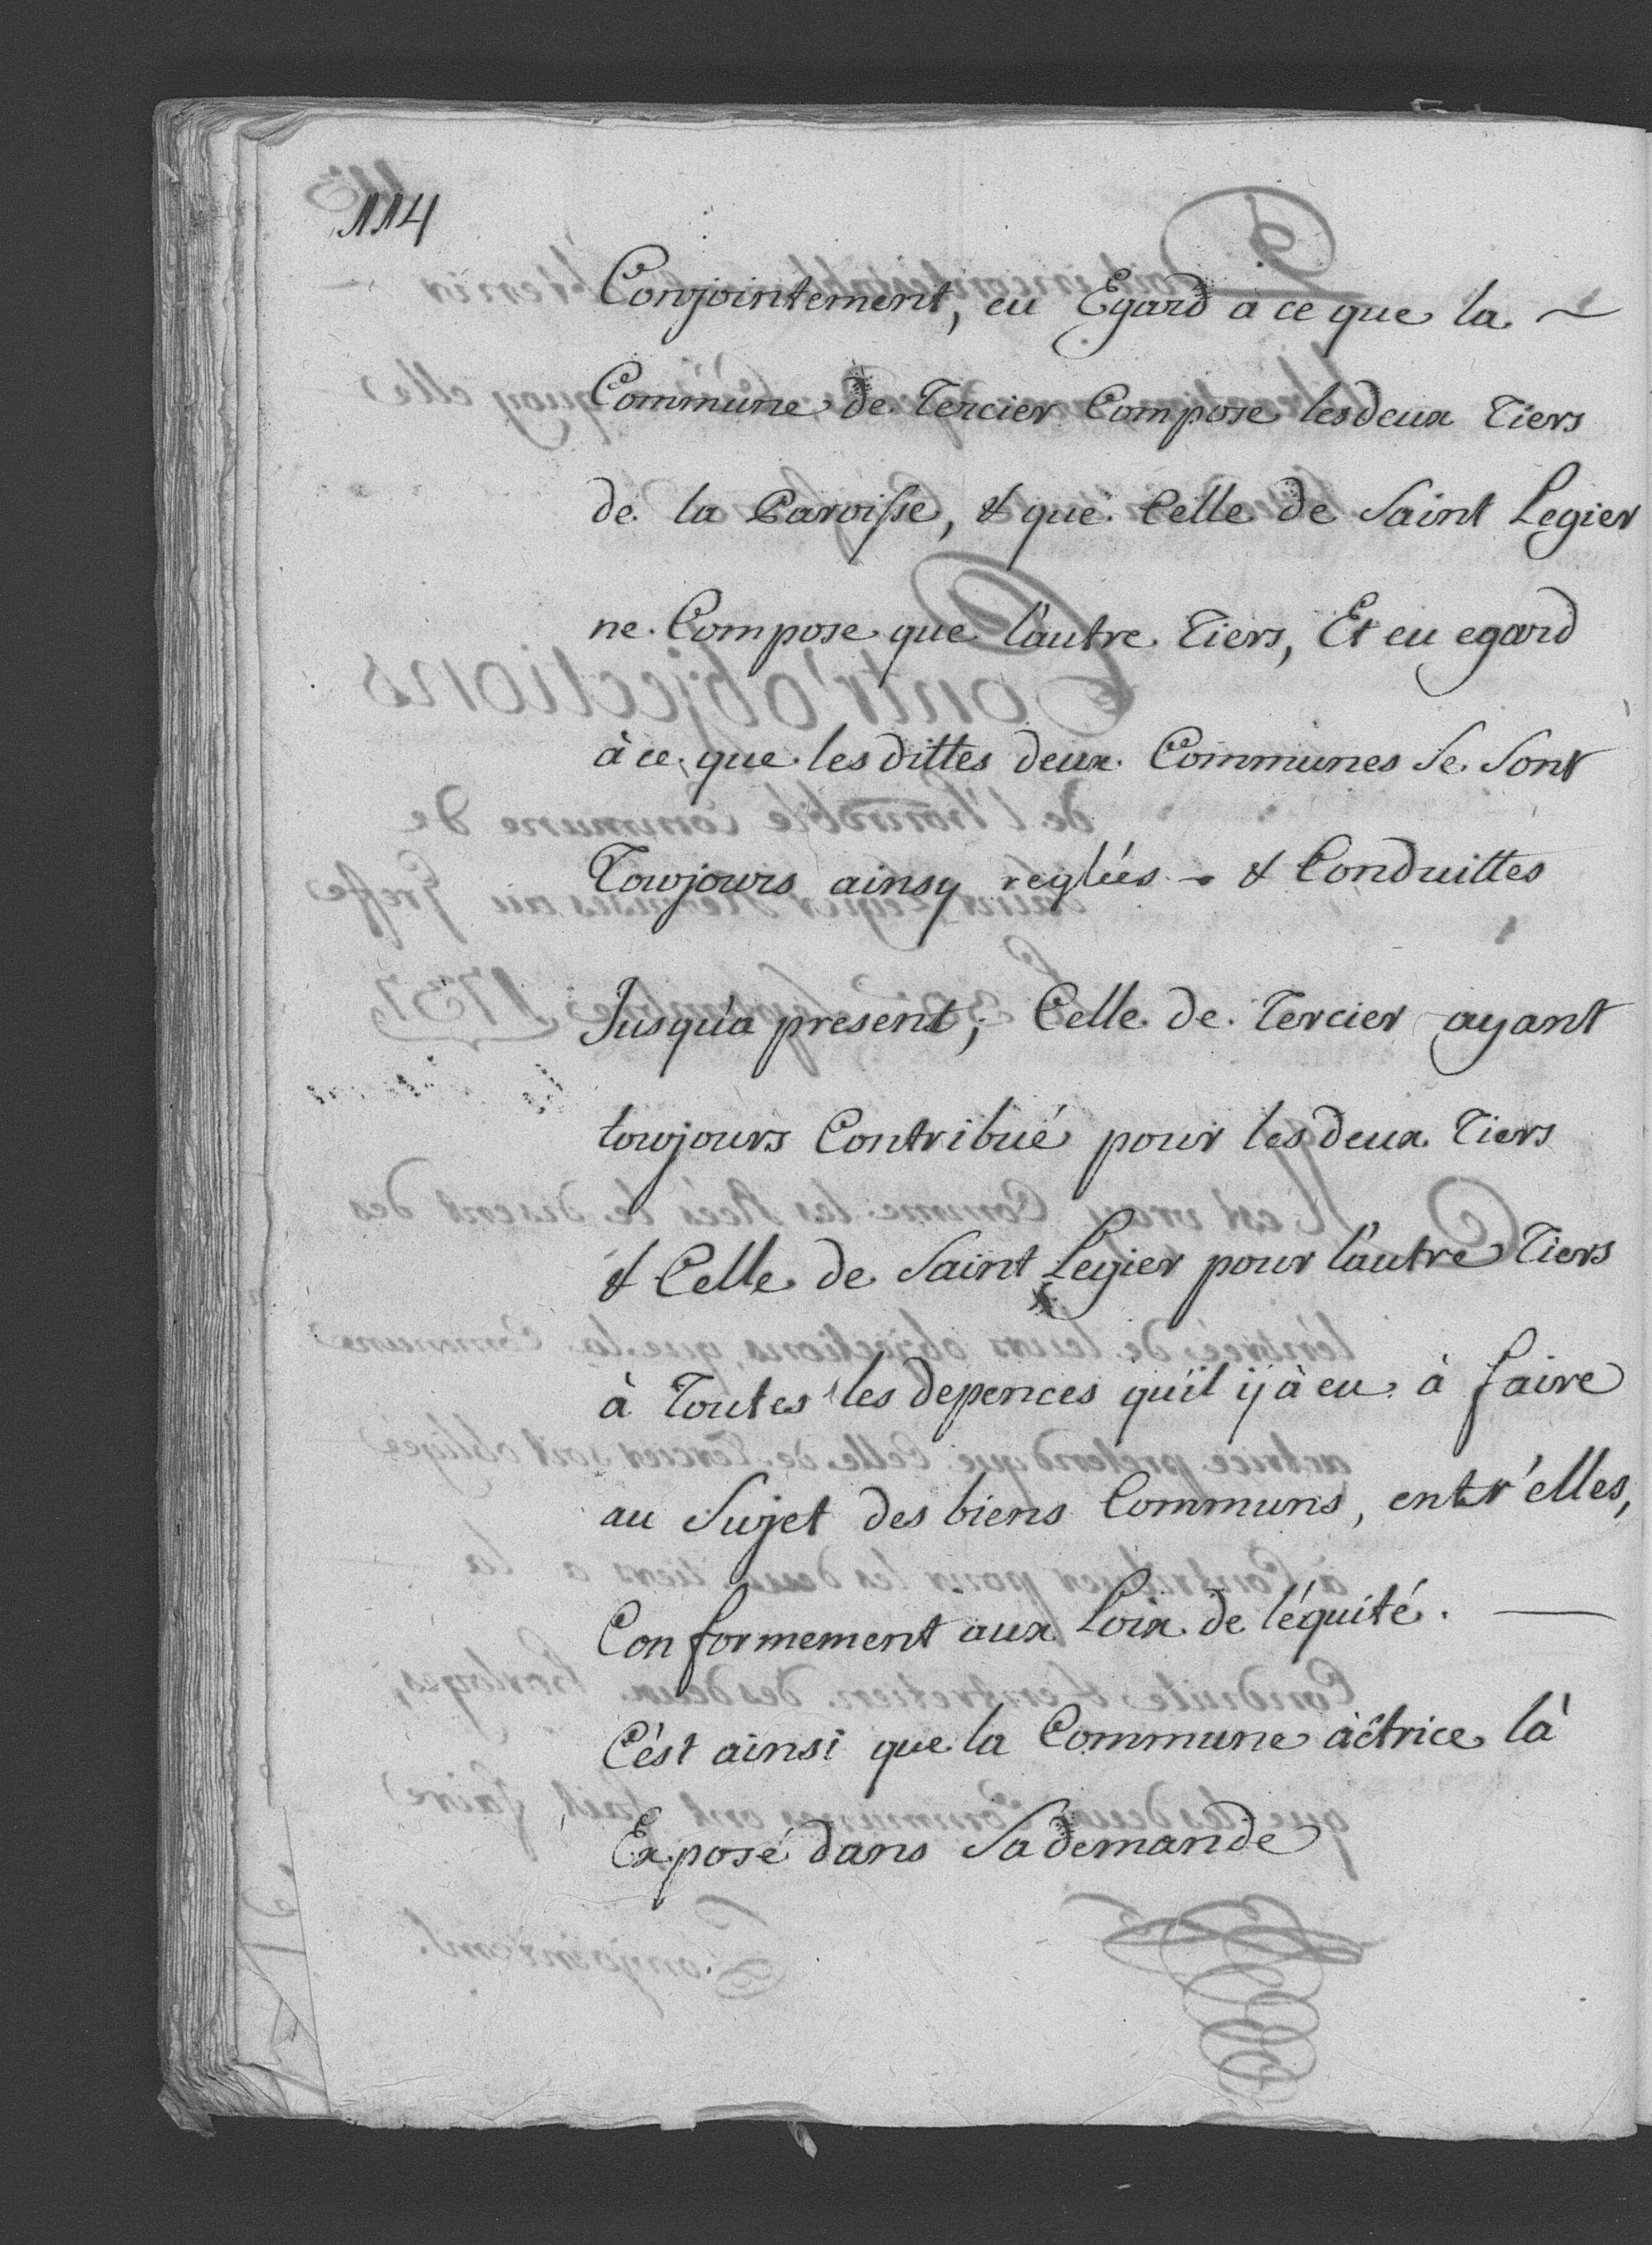 114
Conjointement, eu Egard à ce que la ~
Commune de Tercier Compose les deux Tiers
de la Paroisse, & que Celle de Saint Legier
ne Compose que l'autre Tiers, Et eu egard
à ce que les dittes deux Communes Se Sont
Toujours ainsy reglées & Conduittes
Jusqu'a present; Celle de Tercier ayant
toujours Contribué pour les deux Tiers
& Celle de Saint Legier pour l'autre Tiers
à Toutes les depences qu'il ij à eu à faire
au Sujet des biens Communs, entr'elles,
Conformement aux Loix de léquité. —
C'ést ainsi que la Commune àctrice là
Exposé dans Sa demande